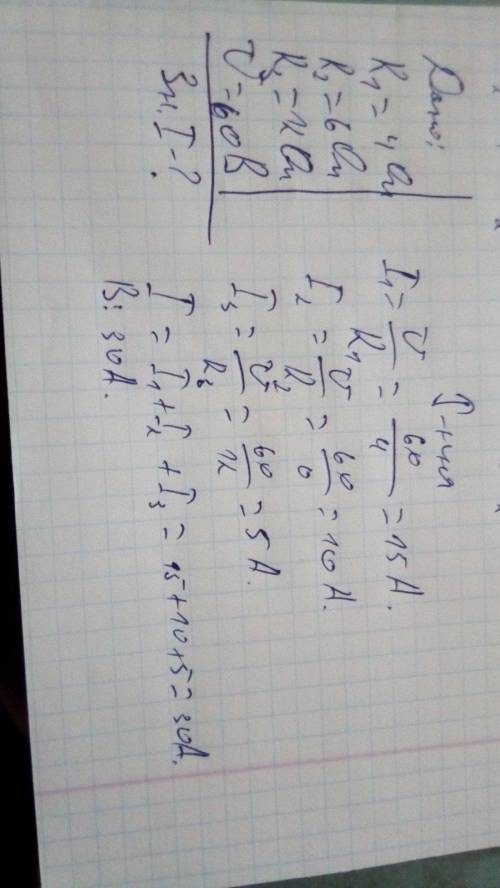 Дано:
R₁ = 4 Ом
R₂ = 6 Ом
R₃ = 12 Ом
U = 60 В
Зн. I - ?
I₁ = U/R₁ = 60/4 = 15 А.
I₂ = U/R₂ = 60/6 = 10 А.
I₃ = U/R₃ = 60/12 = 5 А.
I = I₁ + I₂ + I₃ = 15 + 10 + 5 = 30 А.
В: 30 А.